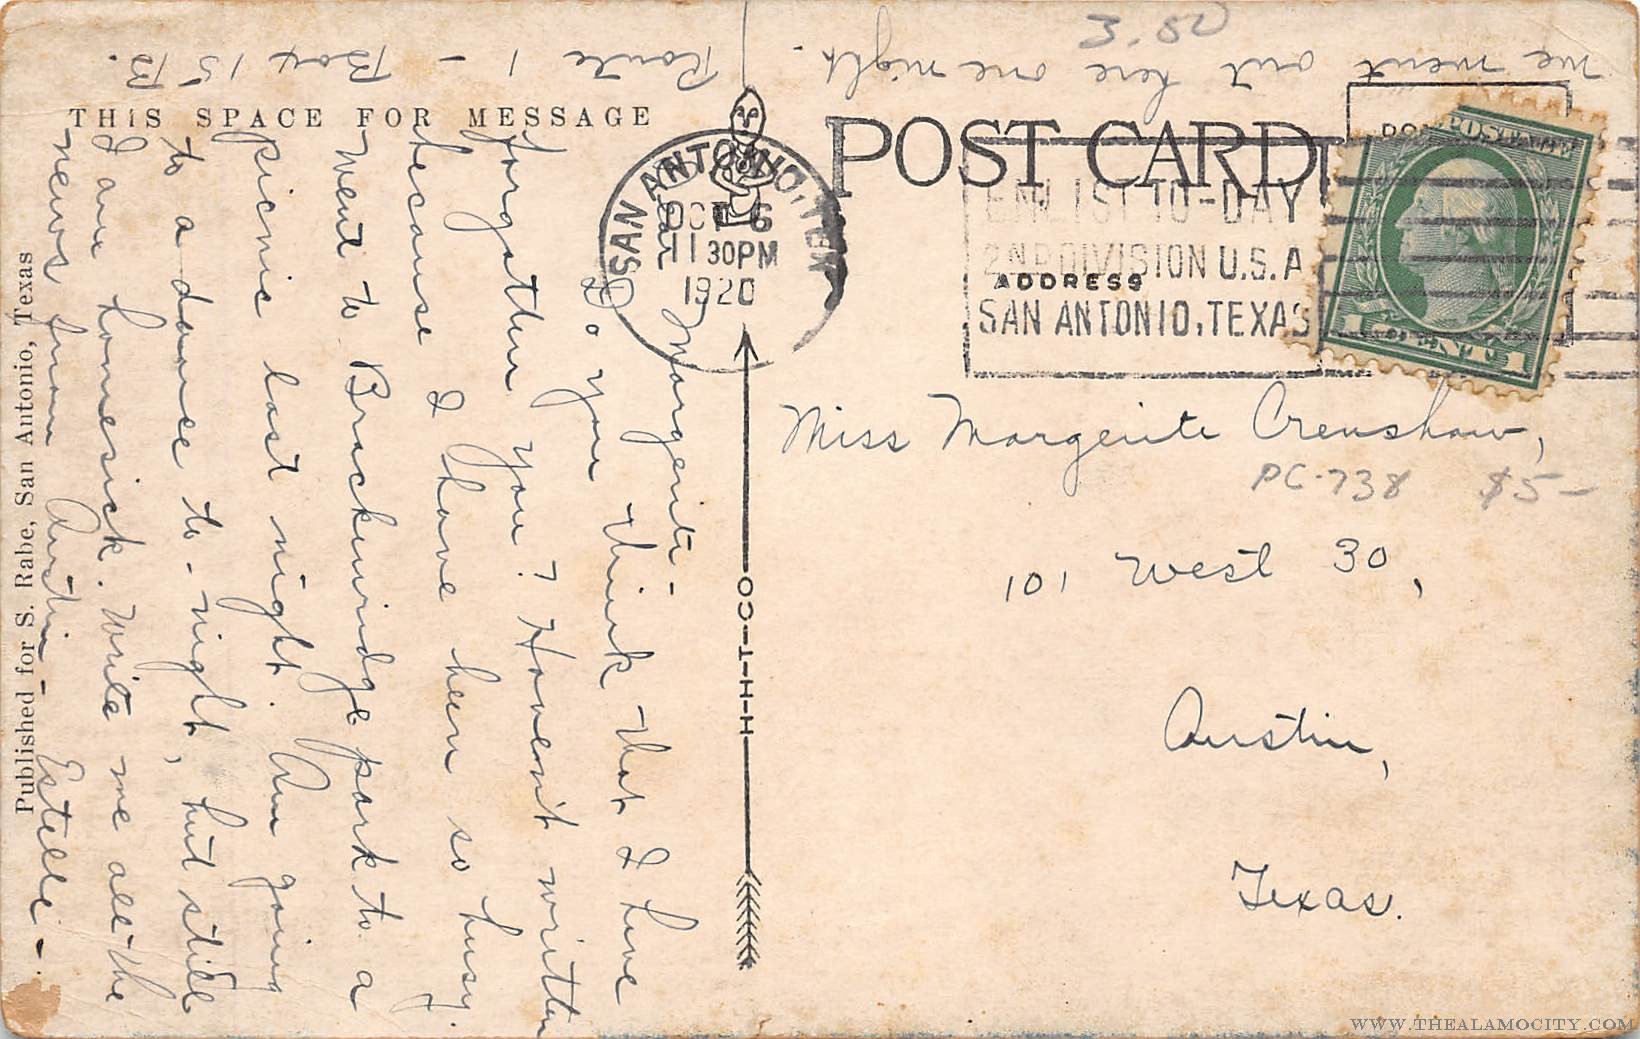 THIS SPACE FOR MESSAGE
POST CARD
ADDRESS
SAN ANTONIO, TEX.
OCT 6
11 30 PM
1920
ENLIST TO-DAY
2ND DIVISION U.S.A
SAN ANTONIO, TEXAS
POSTAGE
1 CENT 1
3.50
Miss Margerite Crenshaw,
PC-738 $5-
101 West 30,
Austin,
Texas.
Dear Margerite-
Do you think that I have
forgotten you? Haven't written
because I have been so busy.
Went to Brackenridge park to a
picnic last night. Am going
to a dance to-night, but still
I am homesick. Write me all the
news from Austin - Estelle -
Route 1 - Box 15 B.
We went out here one night.
H-H-T-CO
Published for S. Rabe, San Antonio, Texas
WWW.THEALAMOCITY.COM